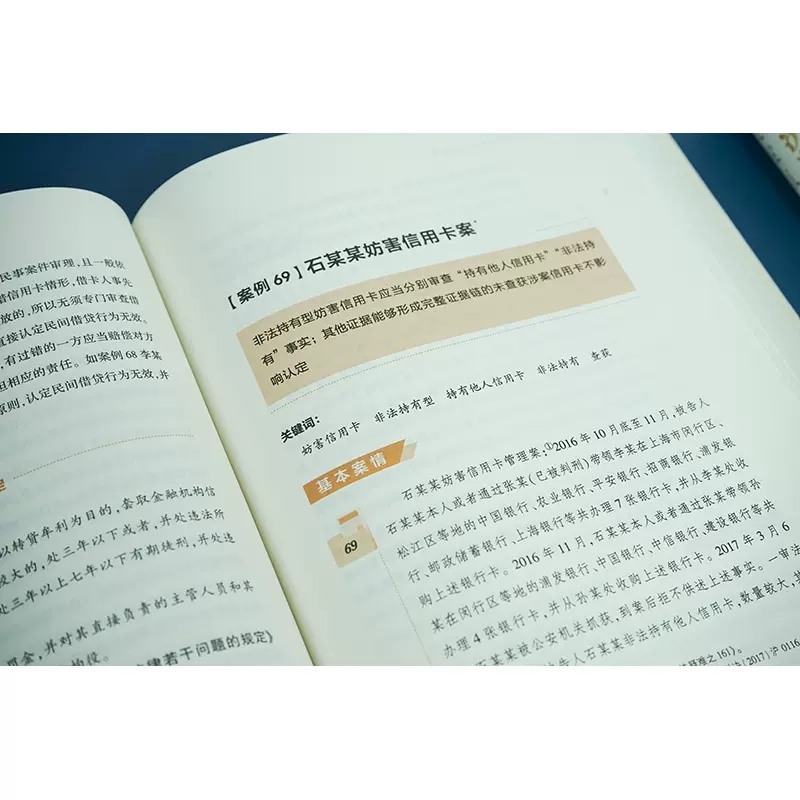 民事案件审理，且一般依
信用卡情形，借卡人事先
放的，所以无须专门审查借
直接认定民间借贷行为无效。
，有过错的一方应当赔偿对方
担相应的责任。如案例 68 李某
原则，认定民间借贷行为无效，并
以转贷牟利为目的，套取金融机构信
较大的，处三年以下或者，并处违法所
处三年以上七年以下有期徒刑，并处违
罚金，并对其直接负责的主管人员和其
拘役。
律若干问题的规定》
【案例 69】石某某妨害信用卡案
非法持有型妨害信用卡应当分别审查“持有他人信用卡”“非法持
有”事实；其他证据能够形成完整证据链的未查获涉案信用卡不影
响认定
关键词：
妨害信用卡 非法持有型 持有他人信用卡 非法持有 查获
基本案情
69
石某某妨害信用卡管理案：①2016 年 10 月底至 11 月，被告人
石某某本人或者通过张某（已被判刑）带领李某在上海市闵行区、
松江区等地的中国银行、农业银行、平安银行、招商银行、浦发银
行、邮政储蓄银行、上海银行等共办理 7 张银行卡，并从李某处收
购上述银行卡。2016 年 11 月，石某某本人或者通过张某带领孙
某在闵行区等地的浦发银行、中国银行、中信银行、建设银行等共
办理 4 张银行卡，并从孙某处收购上述银行卡。2017 年 3 月 6
石某某被公安机关抓获，到案后拒不供述上述事实。一审法
告人石某某非法持有他人信用卡，数量较大，其
疑难之 161）。
（2017）沪 0116